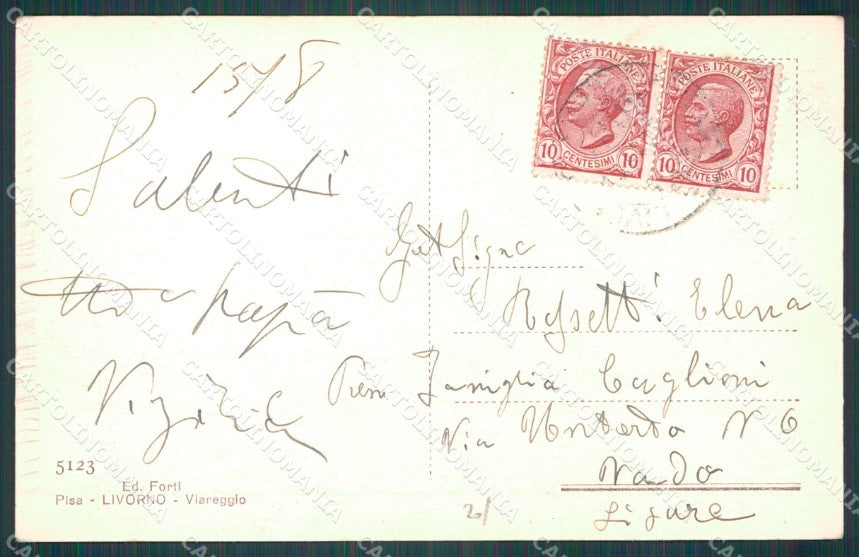 15/8
Saluti
papà
5123
Ed. Forti
Pisa - LIVORNO - Viareggio
POSTE ITALIANE
10 CENTESIMI 10
POSTE ITALIANE
10 CENTESIMI 10
Gent Sigra
Rossetti Elena
Famiglia Caglioni
Via Umberto N 6
Vado
Ligure
CARTOLINOMANIA